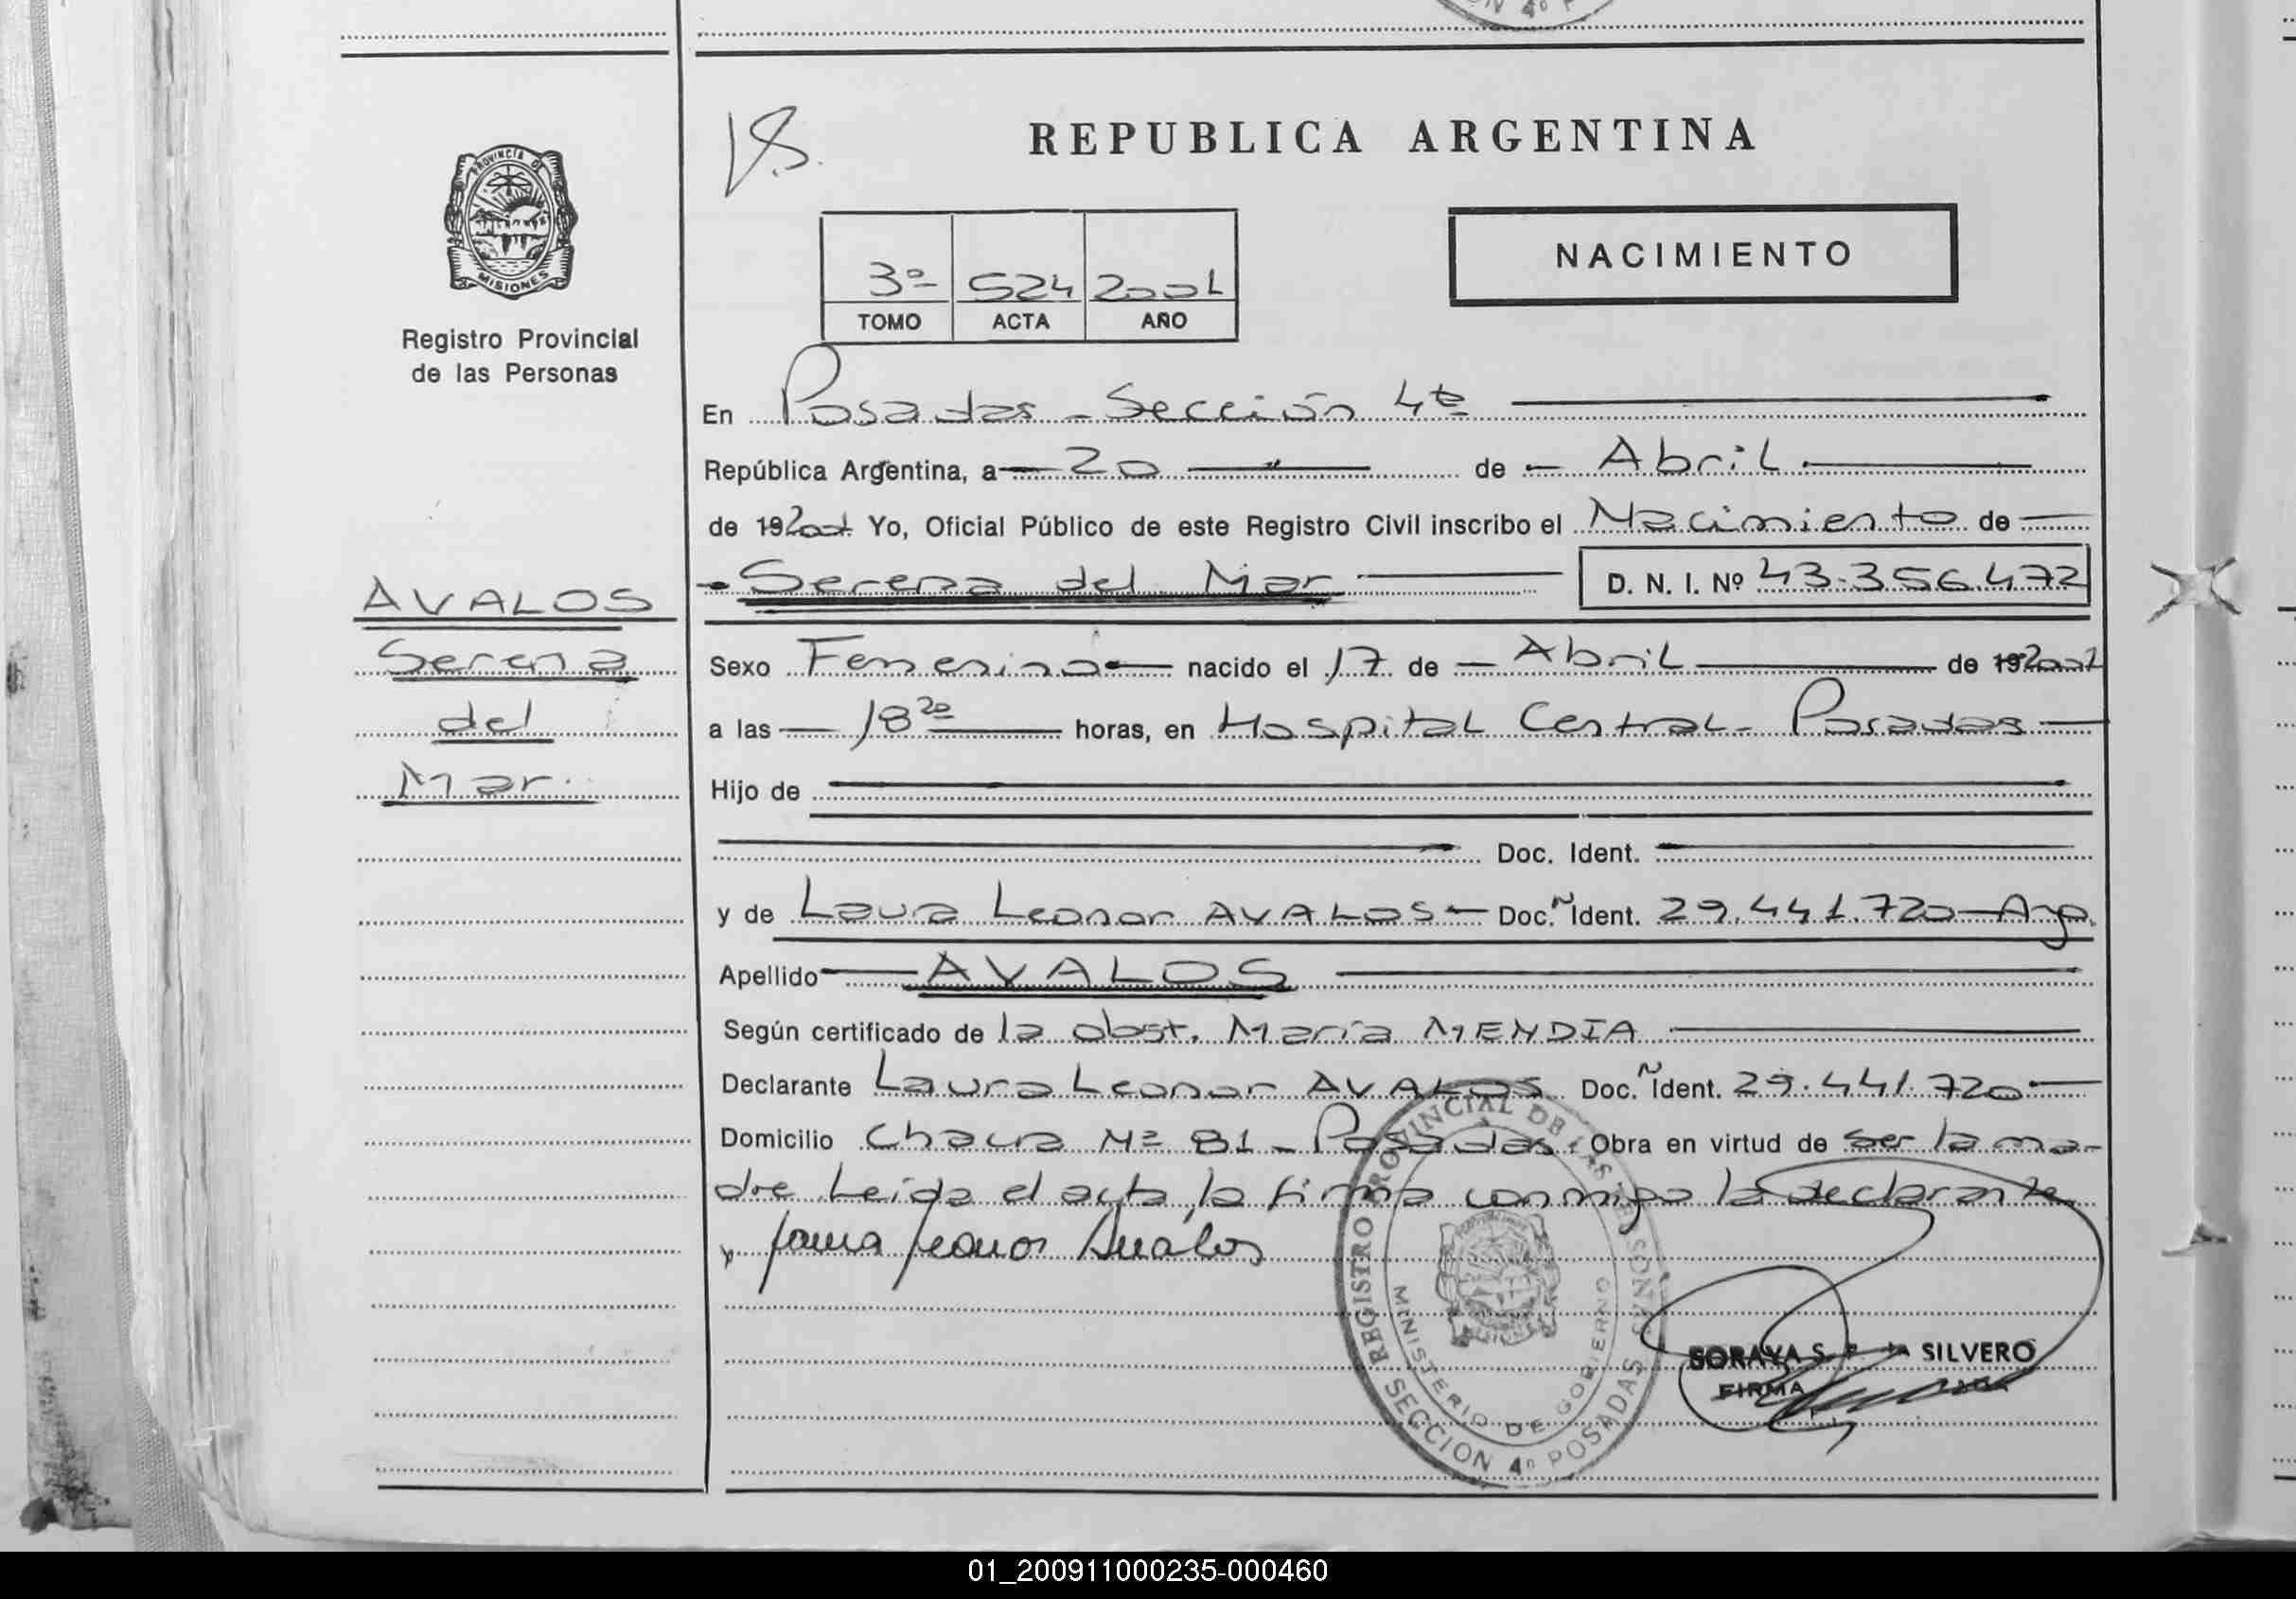 N 4º P
REPUBLICA ARGENTINA
PROVINCIA DE
MISIONES
Registro Provincial
de las Personas
3º 524 2001
TOMO ACTA AÑO
NACIMIENTO
En Posadas - Sección 4ta
República Argentina, a 20 de Abril
de 192001 Yo, Oficial Público de este Registro Civil inscribo el Nacimiento de
Serena del Mar D. N. I. Nº 43.356.472
AVALOS
Serena
del
Mar.
Sexo Femenino nacido el 17 de Abril de 192001
a las 18 20 horas, en Hospital Central - Posadas
Hijo de
Doc. Ident.
y de Laura Leonor AVALOS Doc. Ident. 29.441.720 - Arg.
Apellido AVALOS
Según certificado de la obst. María MENDIA
Declarante Laura Leonor AVALOS Doc. Ident. 29.441.720
Domicilio Chacra Nº 81 - Posadas. Obra en virtud de ser la ma-
dre Leída el acta, la firma conmigo la declarante
Laura Leonor Avalos
REGISTRO PROVINCIAL DE LAS PERSONAS
MINISTERIO DE GOBIERNO
SECCION 4º POSADAS
SORAYA S. SILVERO
FIRMA
01_200911000235-000460